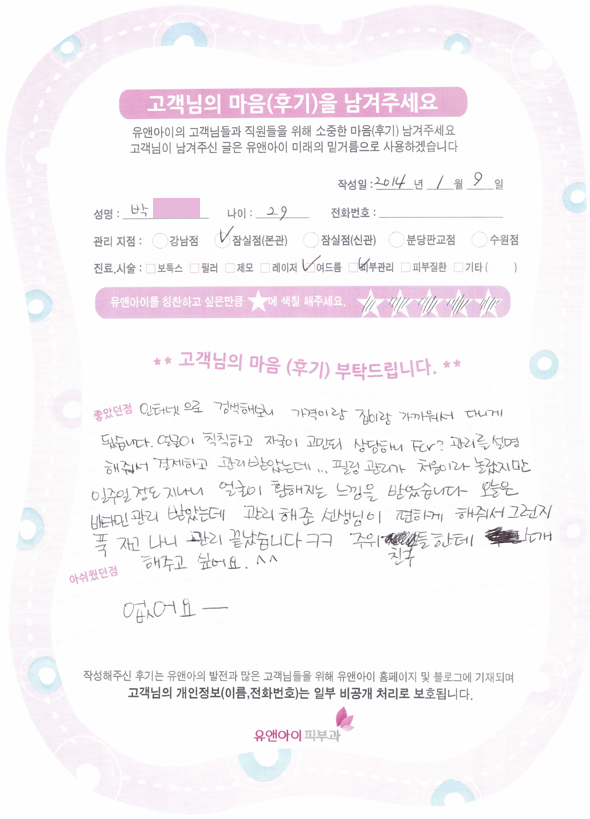 고객님의 마음(후기)을 남겨주세요
유앤아이의 고객님들과 직원들을 위해 소중한 마음(후기) 남겨주세요
고객님이 남겨주신 글은 유앤아이 미래의 밑거름으로 사용하겠습니다
작성일 : 2014 년 1 월 9 일
성명 : 박 나이 : 29 전화번호 :
관리 지점 : 강남점 잠실점(본관) 잠실점(신관) 분당판교점 수원점
진료,시술 : 보톡스 필러 제모 레이저 여드름 피부관리 피부질환 기타 ( )
유앤아이를 칭찬하고 싶은만큼 ★에 색칠 해주세요.
** 고객님의 마음 (후기) 부탁드립니다. **
좋았던점 인터넷으로 검색해보니 가격이랑 집이랑 가까워서 다니게
됐습니다. 얼굴이 칙칙하고 자국이 고민되 상담하니 Fcr? 관리를 설명
해줘서 결제하고 관리받았는데... 필링 관리가 처음이라 놀랐지만
일주일 정도 지나니 얼굴이 환해지는 느낌을 받았습니다 오늘은
비타민 관리 받았는데 관리 해준 선생님이 편하게 해줘서 그런지
푹 자고 나니 관리 끝났습니다 ㅋㅋ 주위 친구들한테
해주고 싶어요. ^^
아쉬웠던점
없어요 —
작성해주신 후기는 유앤아의 발전과 많은 고객님들을 위해 유앤아이 홈페이지 및 블로그에 기재되며
고객님의 개인정보(이름,전화번호)는 일부 비공개 처리로 보호됩니다.
유앤아이피부과